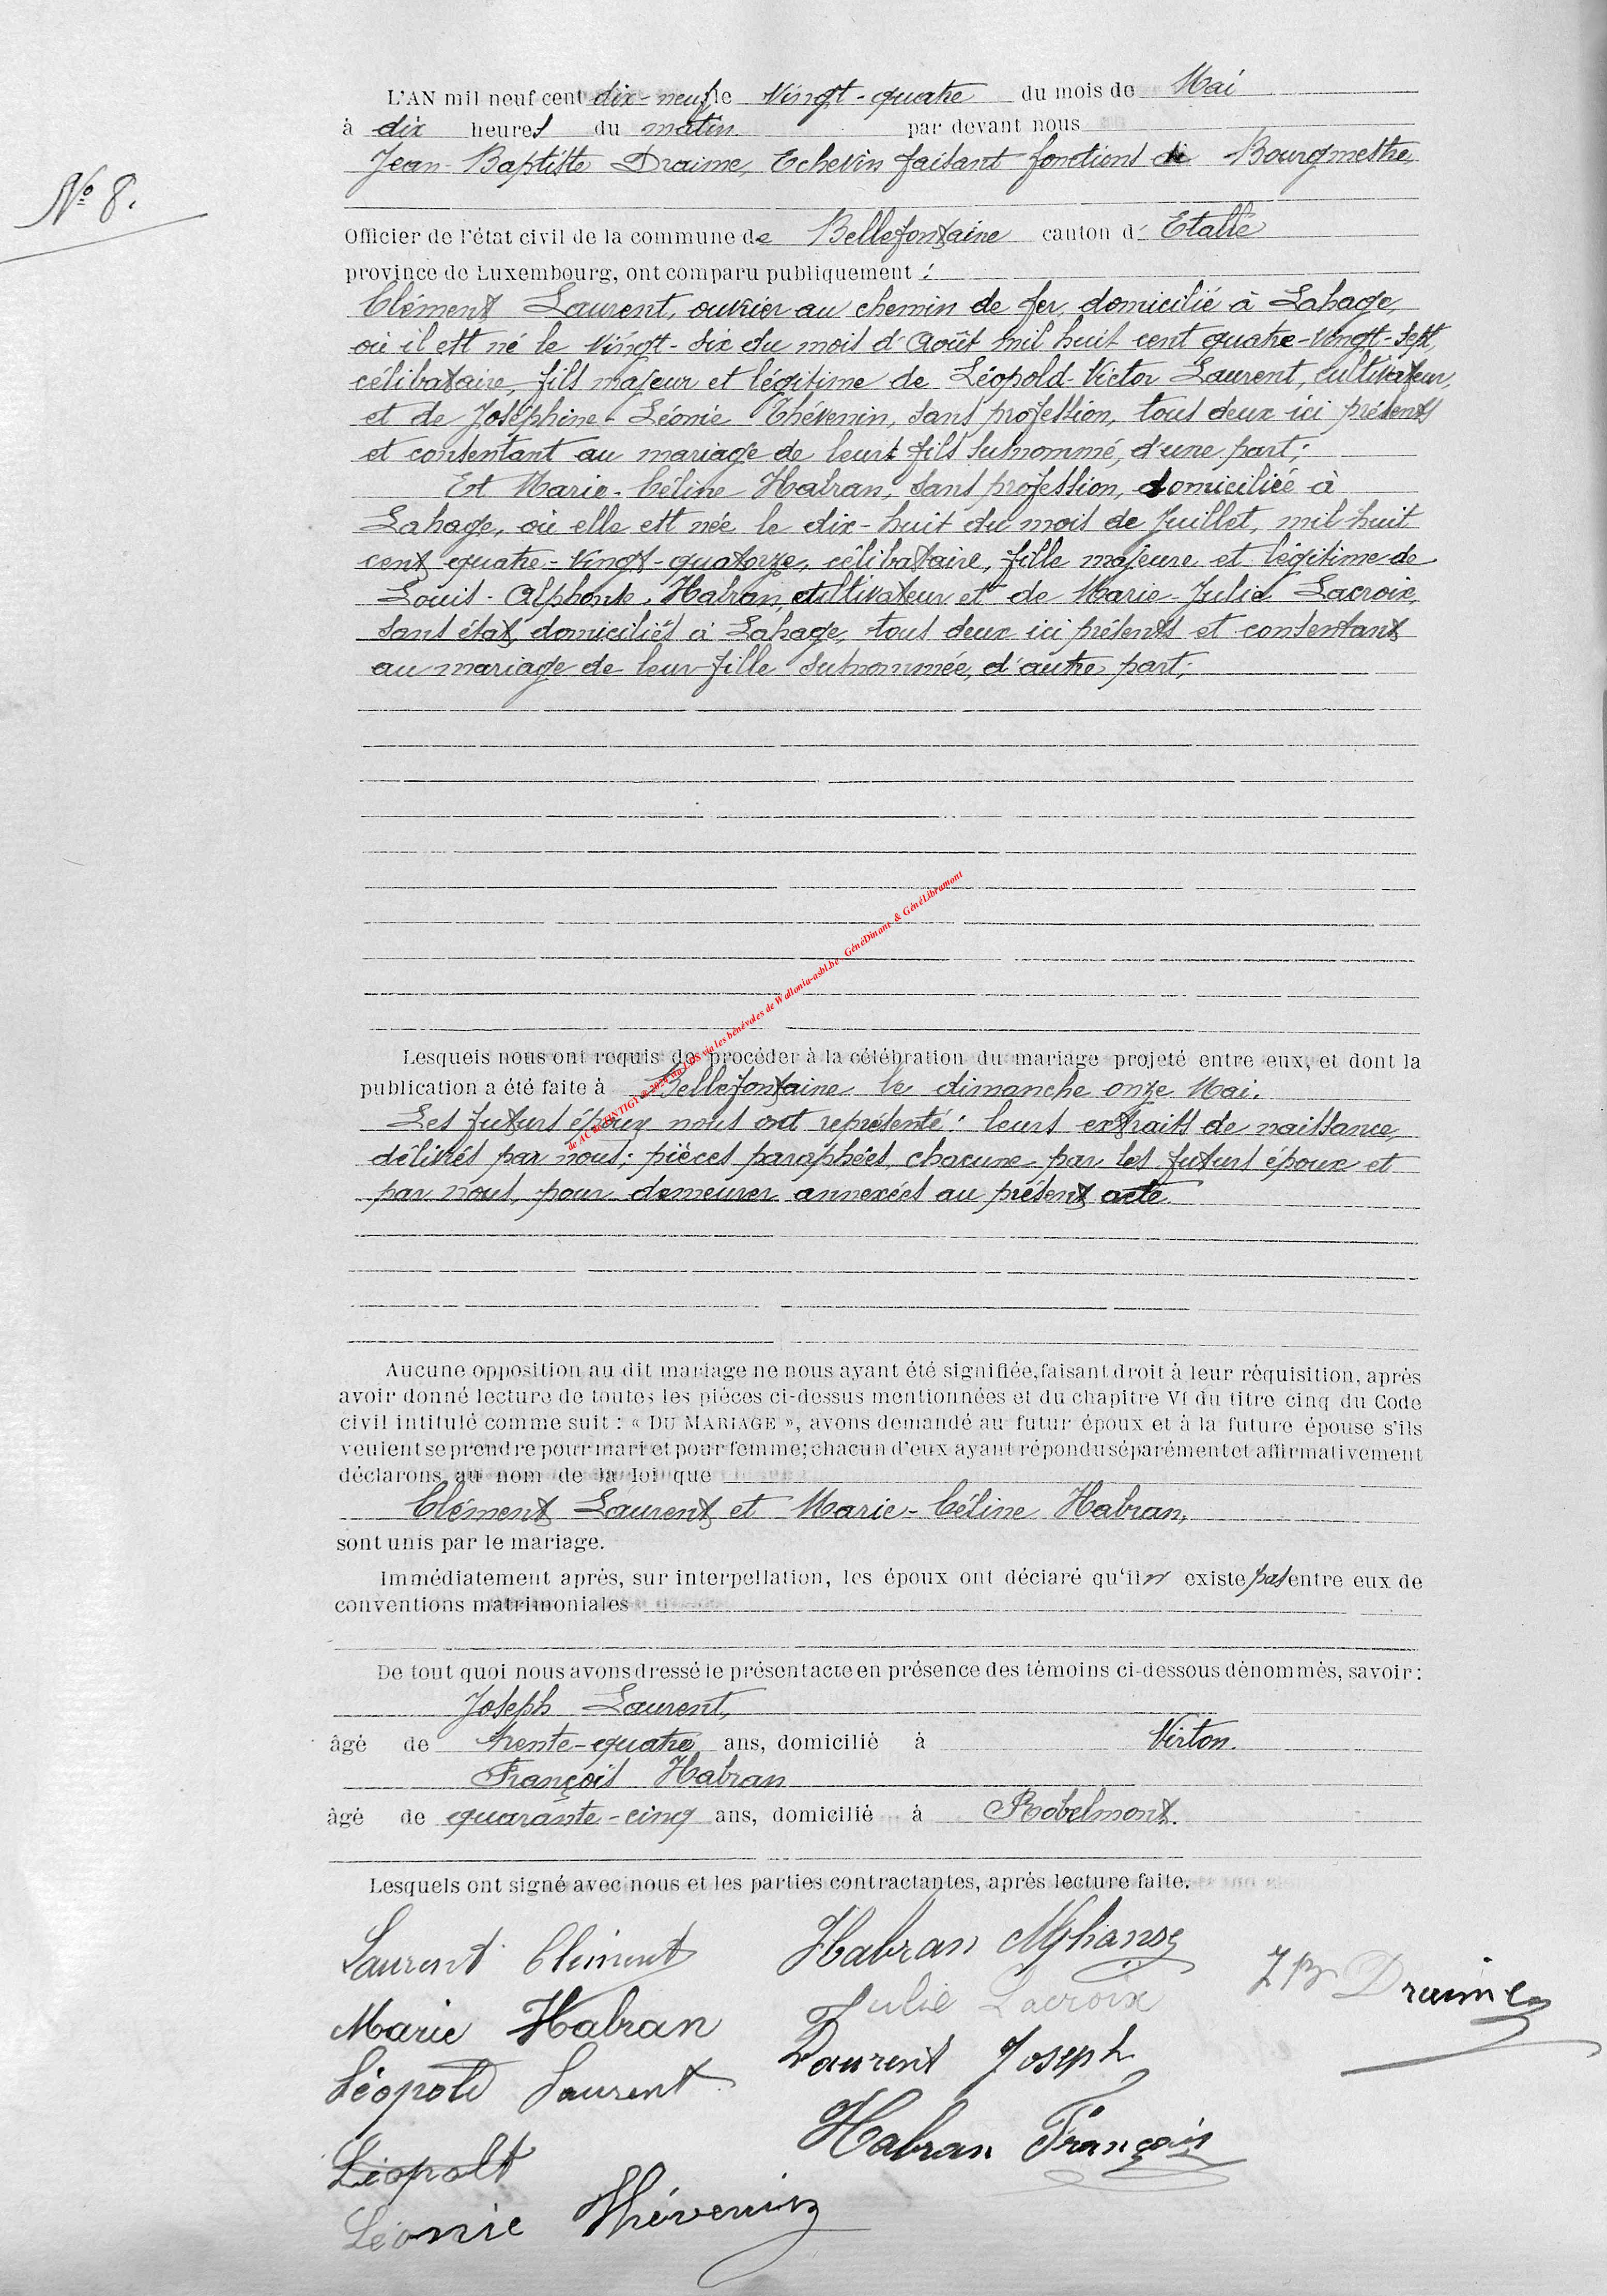 L'AN mil neuf cent dix-neuf le Vingt-quatre du mois de Mai
à dix heures du matin par devant nous
Jean-Baptiste Draime, Echevin faisant fonctions de Bourgmestre,
N° 8.
Officier de l'état civil de la commune de Bellefontaine canton d' Etalle
province de Luxembourg, ont comparu publiquement :
Clément Laurent, ouvrier au chemin de fer, domicilié à Lahage,
où il est né le vingt-six du mois d'Août mil huit cent quatre-vingt-sept,
célibataire, fils majeur et légitime de Léopold-Victor Laurent, cultivateur,
et de Joséphine-Léonie Thévenin, sans profession, tous deux ici présents
et consentant au mariage de leurs fils susnommé, d'une part;
Et Marie-Céline Habran, sans profession, domiciliée à
Lahage, où elle est née le dix-huit du mois de Juillet, mil huit
cent quatre-vingt-quatorze, célibataire, fille majeure et légitime de
Louis-Alphonse Habran, cultivateur et de Marie-Julie Lacroix,
sans état, domiciliés à Lahage, tous deux ici présents et consentant
au mariage de leur fille susnommée, d'autre part;
Lesquels nous ont requis de procéder à la célébration du mariage projeté entre eux, et dont la
publication a été faite à Bellefontaine le dimanche onze Mai.
Les futurs époux nous ont représenté: leurs extraits de naissance,
délivrés par nous; pièces paraphées chacune par les futurs époux et
par nous, pour demeurer annexées au présent acte.
Aucune opposition au dit mariage ne nous ayant été signifiée, faisant droit à leur réquisition, après
avoir donné lecture de toutes les pièces ci-dessus mentionnées et du chapitre VI du titre cinq du Code
civil intitulé comme suit : « DU MARIAGE », avons demandé au futur époux et à la future épouse s'ils
veulent se prendre pour mari et pour femme; chacun d'eux ayant répondu séparément et affirmativement
déclarons au nom de la loi que
Clément Laurent et Marie-Céline Habran,
sont unis par le mariage.
Immédiatement après, sur interpellation, les époux ont déclaré qu'il n' existe pas entre eux de
conventions matrimoniales
De tout quoi nous avons dressé le présent acte en présence des témoins ci-dessous dénommés, savoir :
Joseph Laurent,
âgé de trente-quatre ans, domicilié à Virton.
François Habran
âgé de quarante-cinq ans, domicilié à Robelmont.
Lesquels ont signé avec nous et les parties contractantes, après lecture faite.
Laurent Clément
Habran Alphonse
JB Draime
Marie Habran
Julie Lacroix
Léopold Laurent
Laurent Joseph
Léopolt
Habran François
Léonie Thévenin
via les bénévoles de Wallonia-asbl.be - GénéDinant & GénéLibramont